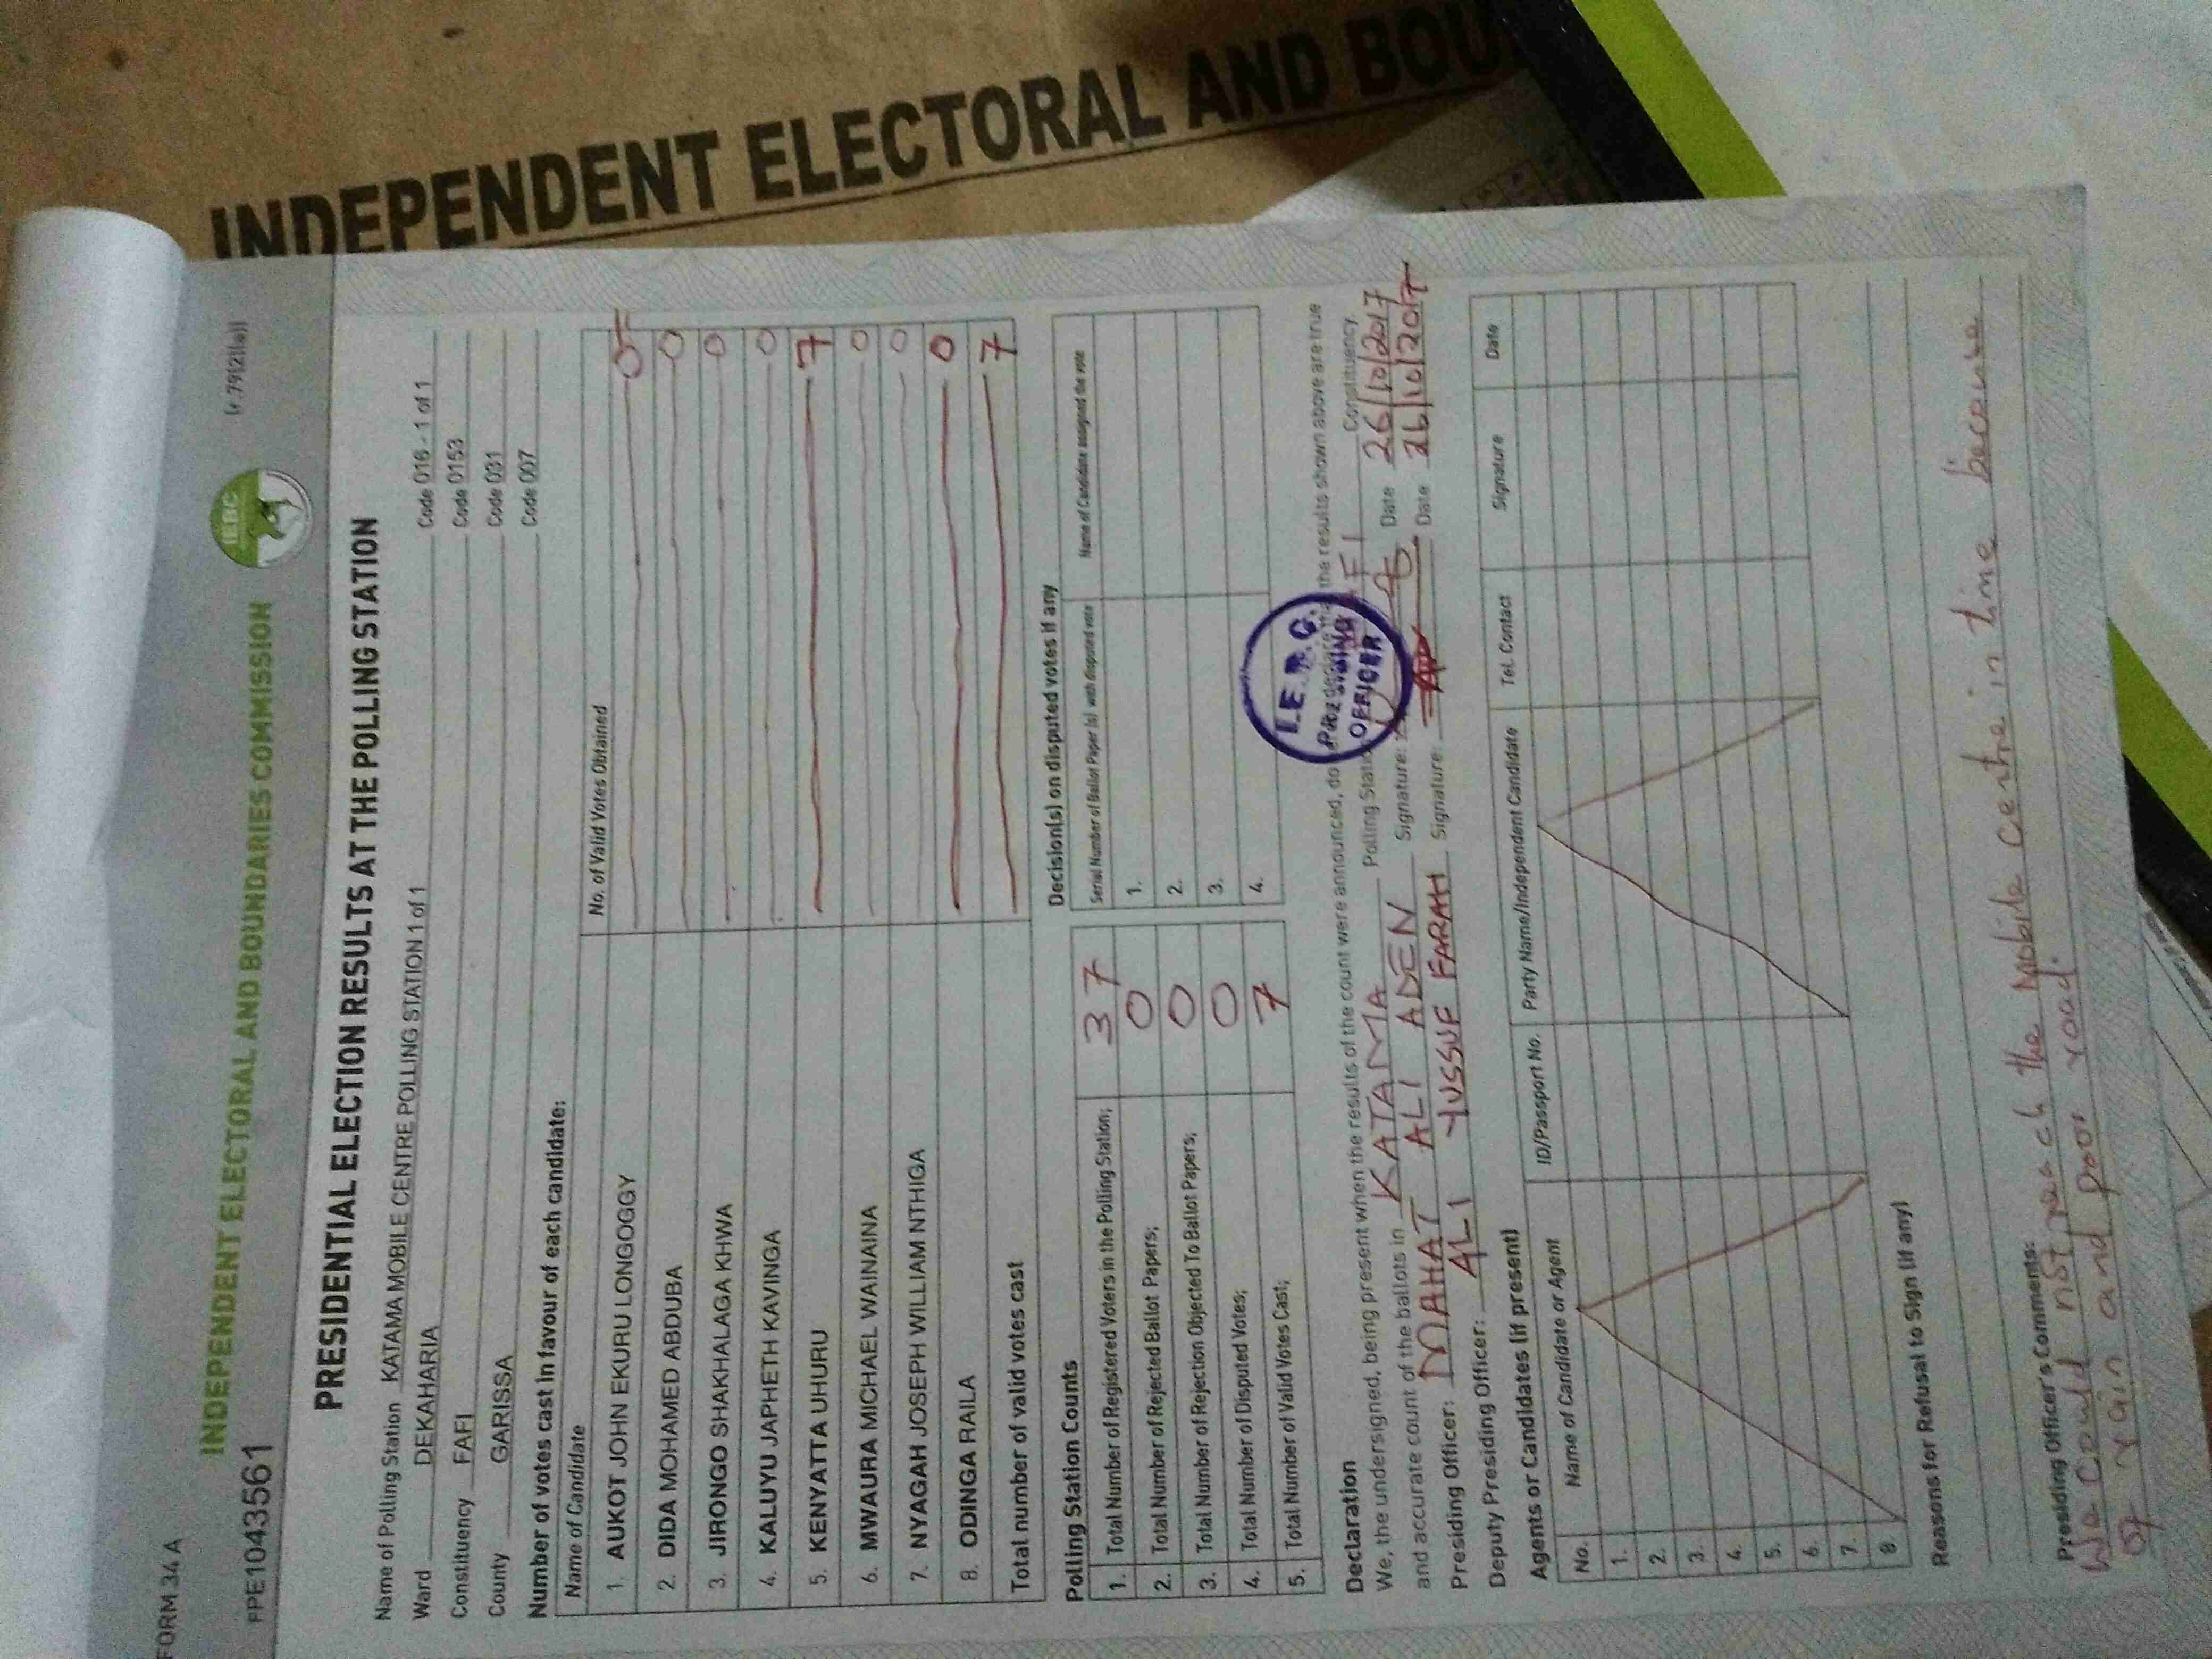 INDEPENDENT ELECTORAL AND BOU
FORM 34 A
(r.79(2)(a))
INDEPENDENT ELECTORAL AND BOUNDARIES COMMISSION
IEBC
PPE1043561
PRESIDENTIAL ELECTION RESULTS AT THE POLLING STATION
Name of Polling Station KATAMA MOBILE CENTRE POLLING STATION 1 of 1 Code 016 - 1 of 1
Ward DEKAHARIA Code 0153
Constituency FAFI Code 031
County GARISSA Code 007
Number of votes cast in favour of each candidate:
Name of Candidate No. of Valid Votes Obtained
1. AUKOT JOHN EKURU LONGOGGY 0
2. DIDA MOHAMED ABDUBA 0
3. JIRONGO SHAKHALAGA KHWA 0
4. KALUYU JAPHETH KAVINGA 0
5. KENYATTA UHURU 7
6. MWAURA MICHAEL WAINAINA 0
7. NYAGAH JOSEPH WILLIAM NTHIGA 0
8. ODINGA RAILA 0
Total number of valid votes cast 7
Polling Station Counts
1. Total Number of Registered Voters in the Polling Station; 37
2. Total Number of Rejected Ballot Papers; 0
3. Total Number of Rejection Objected To Ballot Papers; 0
4. Total Number of Disputed Votes; 0
5. Total Number of Valid Votes Cast; 7
Decision(s) on disputed votes if any
Serial Number of Ballot Paper (s) with disputed vote Name of Candidate assigned the vote
1.
2.
3.
4.
Declaration
We, the undersigned, being present when the results of the count were announced, do the results shown above are true
and accurate count of the ballots in KATAMA Polling Constituency.
Presiding Officer: MAHAT ALI ADEN Signature: Date 26/10/2017
Deputy Presiding Officer: ALI YUSSUF FARAH Signature: Date 26/10/2017
I.E.B.C.
PRESIDING
OFFICER
Agents or Candidates (if present)
No. Name of Candidate or Agent ID/Passport No. Party Name/Independent Candidate Tel. Contact Signature Date
1.
2.
3.
4.
5.
6.
7.
8.
Reasons for Refusal to Sign (if any)
Presiding Officer's Comments:
We could not reach the Mobile centre in time because
of rain and poor road.